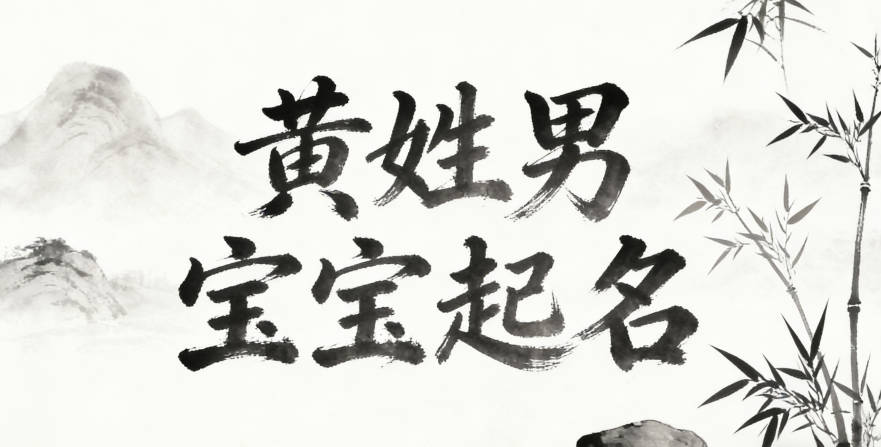 黄姓男
宝宝起名